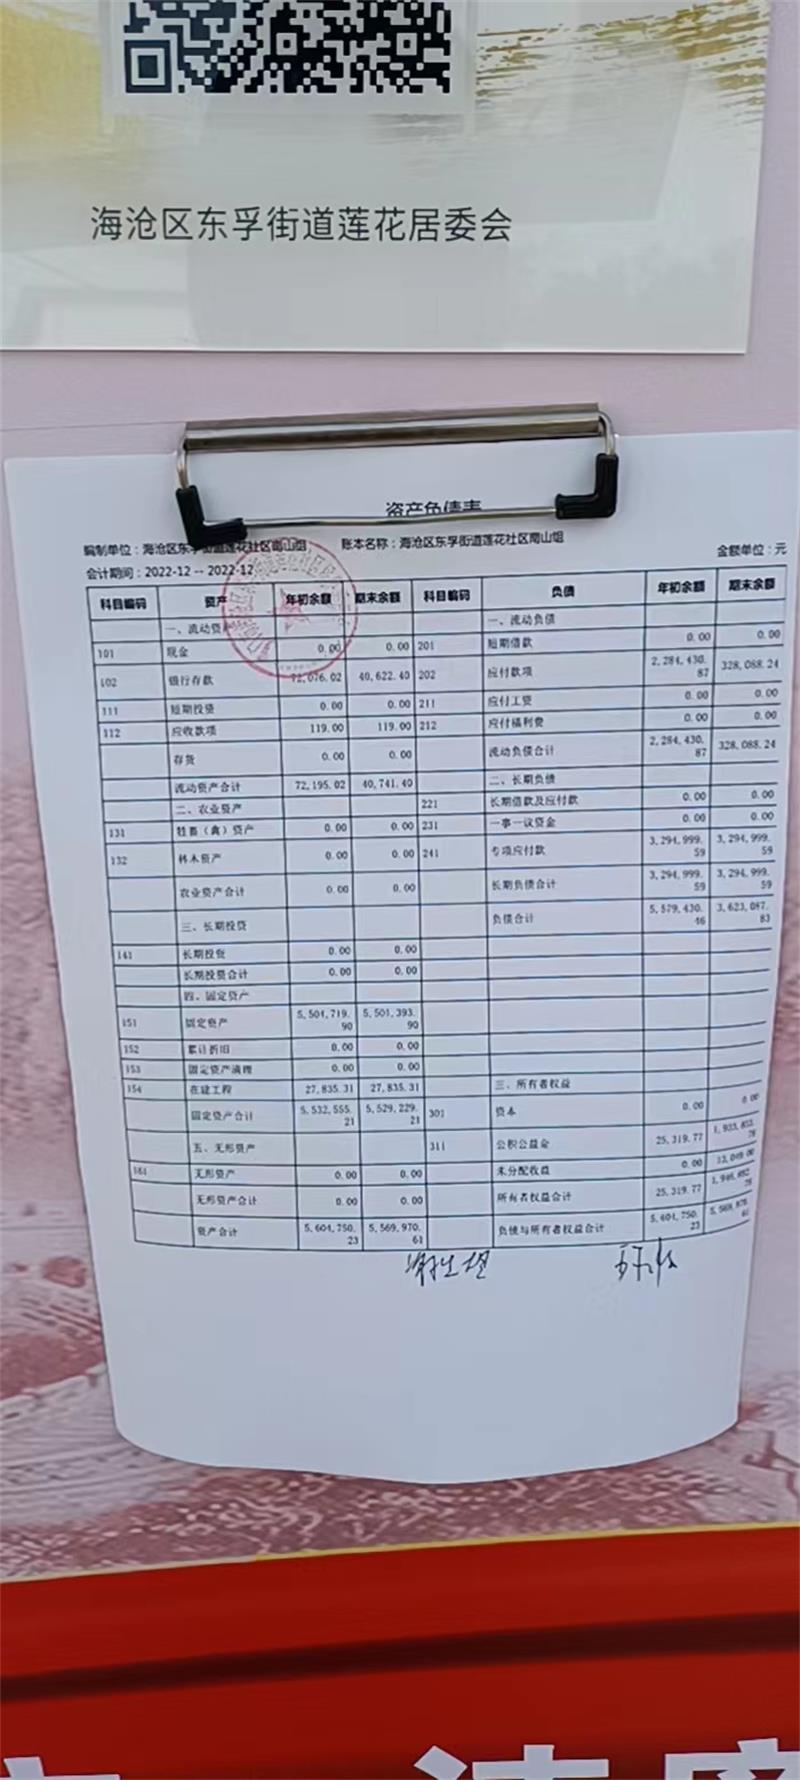 海沧区东孚街道莲花居委会
资产负债表
编制单位：海沧区东孚街道莲花社区南山组 账本名称：海沧区东孚街道莲花社区南山组 金额单位：元
会计期间：2022-12 -- 2022-12
科目编码 资产 年初余额 期末余额 科目编码 负债 年初余额 期末余额
一、流动资产 一、流动负债
101 现金 0.00 0.00 201 短期借款 0.00 0.00
102 银行存款 72,076.02 40,622.40 202 应付款项 2,284,430.87 328,088.24
111 短期投资 0.00 0.00 211 应付工资 0.00 0.00
112 应收款项 119.00 119.00 212 应付福利费 0.00 0.00
存货 0.00 0.00 流动负债合计 2,284,430.87 328,088.24
流动资产合计 72,195.02 40,741.40 二、长期负债
二、农业资产 221 长期借款及应付款 0.00 0.00
131 牲畜（禽）资产 0.00 0.00 231 一事一议资金 0.00 0.00
132 林木资产 0.00 0.00 241 专项应付款 3,294,999.59 3,294,999.59
农业资产合计 0.00 0.00 长期负债合计 3,294,999.59 3,294,999.59
三、长期投资 负债合计 5,579,430.46 3,623,087.83
141 长期投资 0.00 0.00
长期投资合计 0.00 0.00
四、固定资产
151 固定资产 5,504,719.90 5,501,393.90
152 累计折旧 0.00 0.00
153 固定资产清理 0.00 0.00
154 在建工程 27,835.31 27,835.31 三、所有者权益
固定资产合计 5,532,555.21 5,529,229.21 301 资本 0.00 0.00
五、无形资产 311 公积公益金 25,319.77
161 无形资产 0.00 0.00 未分配收益 0.00 13,049.00
无形资产合计 0.00 0.00 所有者权益合计 25,319.77
资产合计 5,604,750.23 5,569,970.61 负债与所有者权益合计 5,604,750.23 5,569,970.61